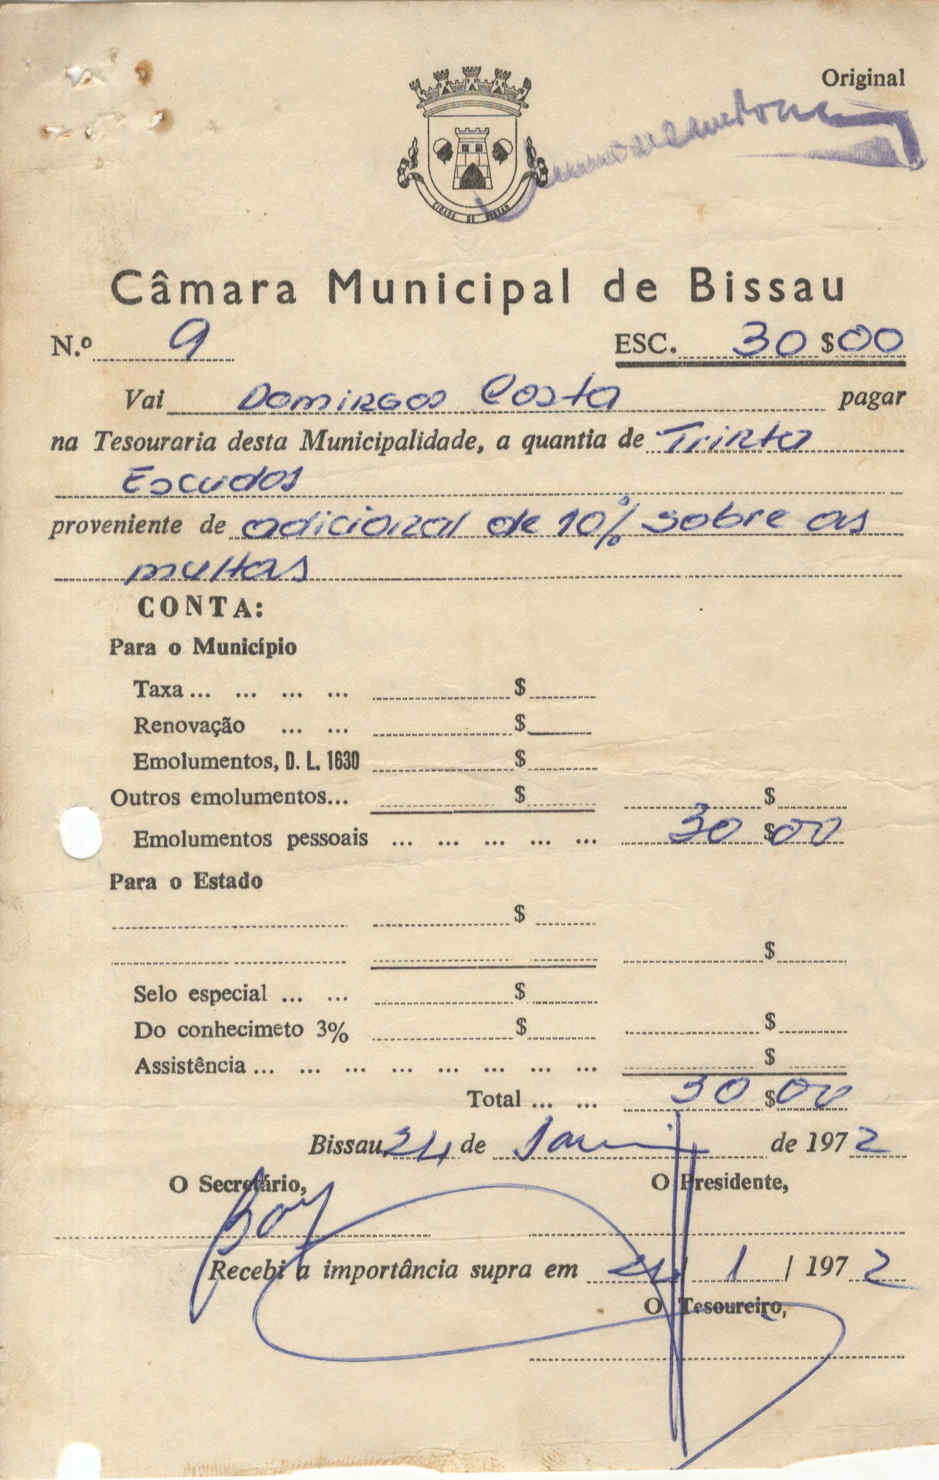 Original
CIDADE DE BISSAU
Câmara Municipal de Bissau
N.º 9 ESC. 30 $ 00
Vai Domingos Costa pagar
na Tesouraria desta Municipalidade, a quantia de Trinta
Escudos
proveniente de adicional de 10% sobre as
multas
CONTA:
Para o Município
Taxa ... ... ... ... $
Renovação ... ... $
Emolumentos, D. L. 1630 $
Outros emolumentos... $ $
Emolumentos pessoais ... ... ... ... ... 30 $ 00
Para o Estado
$
$
Selo especial ... ... $
Do conhecimeto 3% $ $
Assistência ... ... ... ... ... ... ... ... $
Total ... ... 30 $ 00
Bissau, 24 de de 1972
O Secretário, O Presidente,
Recebi a importância supra em 24 / 1 / 1972
O Tesoureiro,